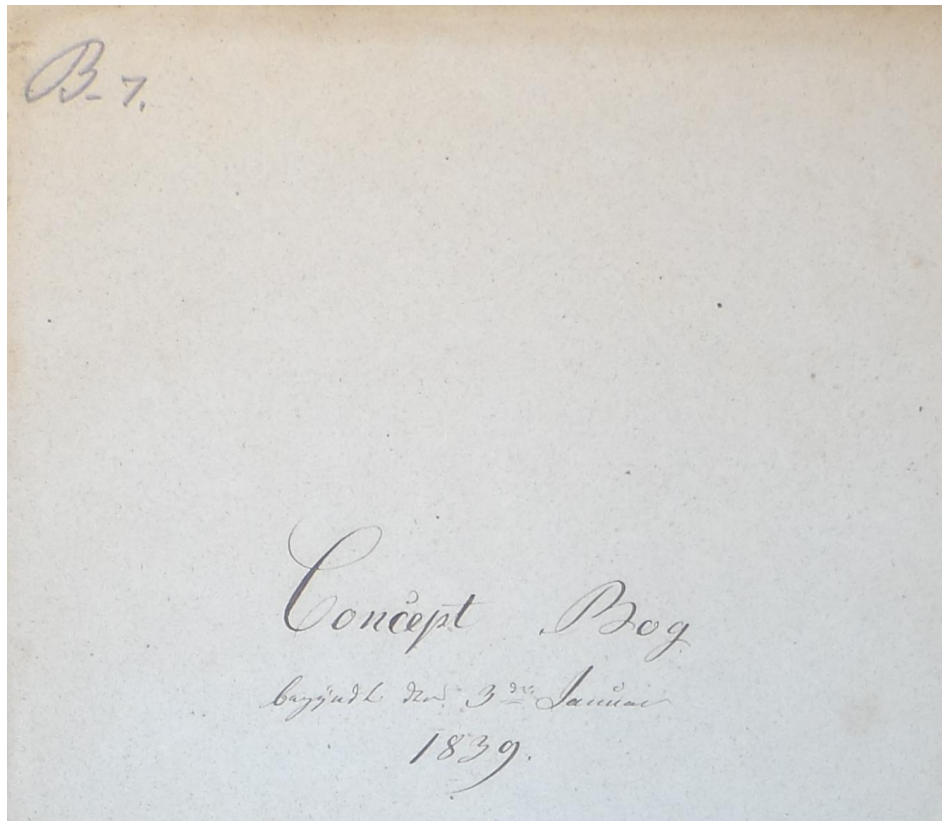 B-7.
Concept Bog
begyndt den 3die Januar
1839.